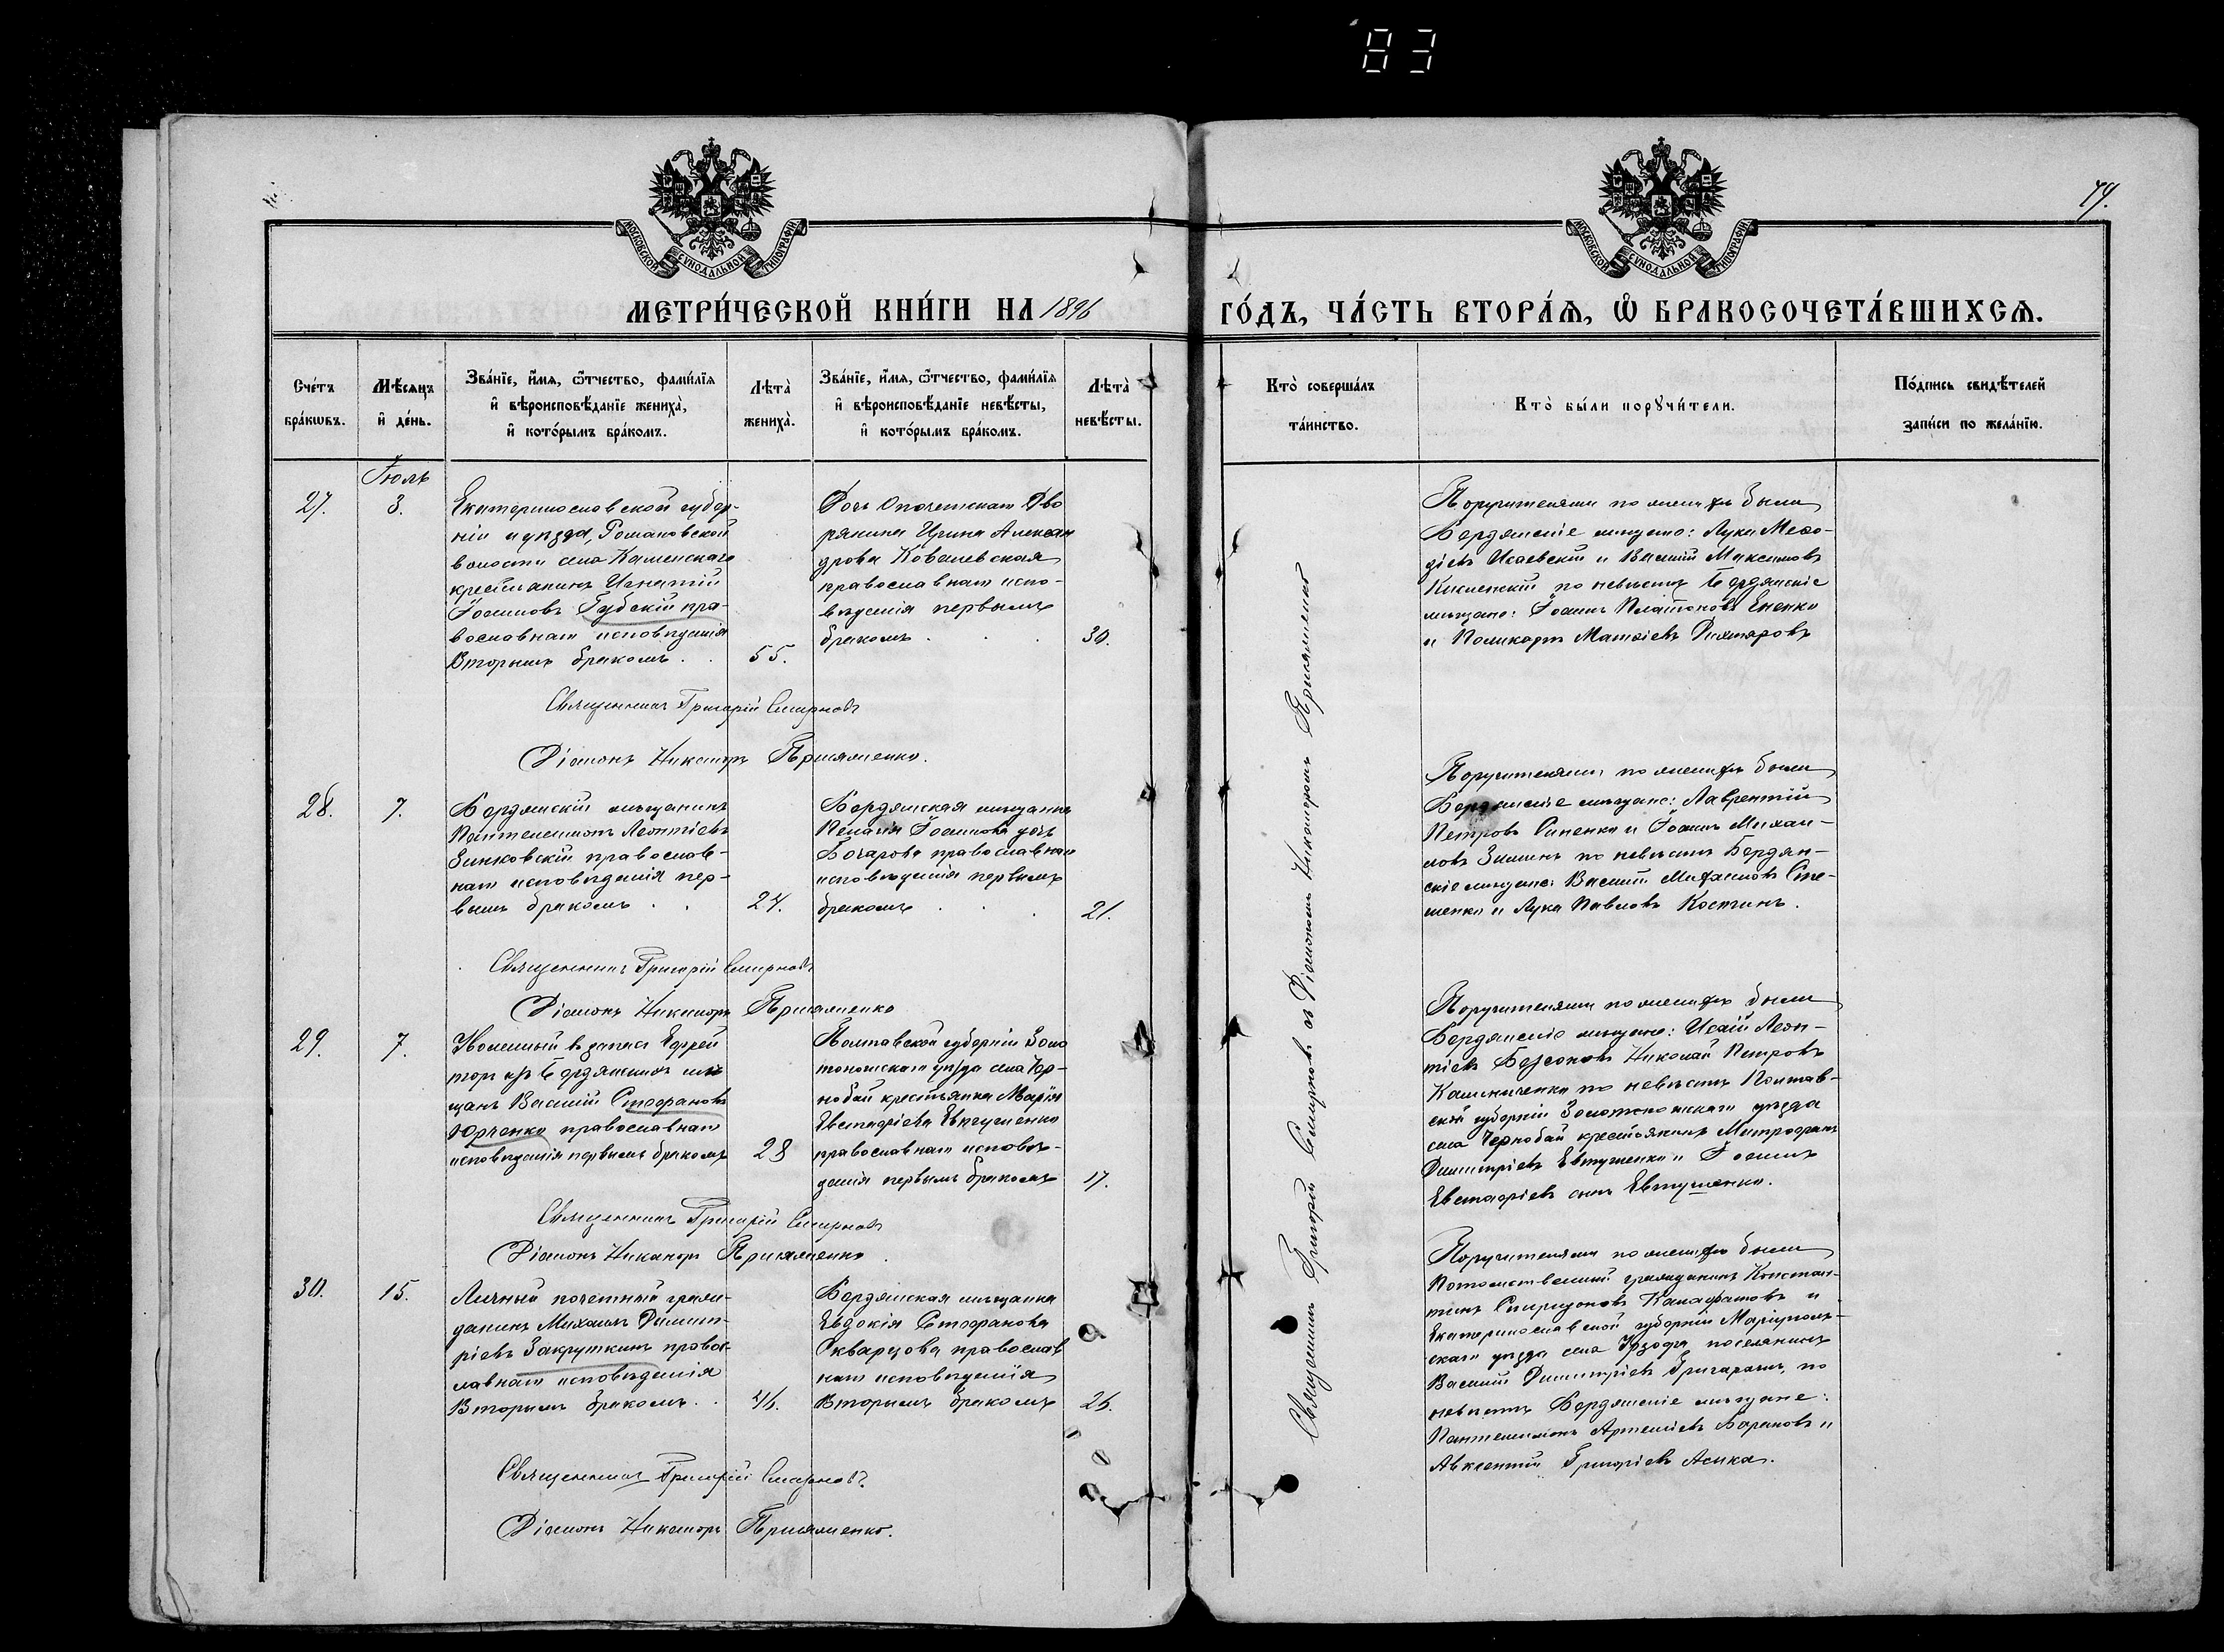 83
79.
МОСКОВСКОЙ СУНОДАЛЬНОЙ ТИПОГРАФІИ
МОСКОВСКОЙ СУНОДАЛЬНОЙ ТИПОГРАФІИ
МЕТРИ́ЧЕСКОЙ КНИ́ГИ НА 1896 ГО́ДЪ, ЧА́СТЬ ВТОРА́Ѧ, Ѽ БРАКОСОЧЕТА́ВШИХСѦ.
Сче́тъ
бра́кωвъ.
Мѣсяцъ
и҆ де́нь.
Зва́нїе, и҆́мя, ѻ҆́тчество, фами́лїя
и҆ вѣроисповѣ́данїе жениха̀,
и҆ кото́рымъ бра́комъ.
Лѣта̀
жениха̀.
Зва́нїе, и҆́мя, ѻ҆́тчество, фами́лїя
и҆ вѣроисповѣ́данїе невѣ́сты,
и҆ кото́рымъ бра́комъ.
Лѣта̀
невѣ́сты.
Кто̀ соверша́лъ
та́инство.
Кто̀ бы́ли порꙋчи́тели.
По́дпись свидѣ́телей
за́писи по жела́нїю.
Іюль
27.
3.
Екатеринославской губер-
ніи и уѣзда, Романовской
волости села Каменскаго
крестьянинъ Игнатій
Іоанновъ Губскій пра-
вославнаго исповѣданія
Вторымъ бракомъ. .
55.
Дочь Дво
рянина Ирина Алексан
дрова Ковалевская
православнаго испо-
вѣданія первымъ
бракомъ . . .
30.
Поручителями по женихѣ были
Бердянскіе мѣщане: Лука Меѳо-
діевъ Исаевскій и Василій Максимовъ
по невѣстѣ Бердянскіе
мѣщане: Іоаннъ Платоновъ Ененко
и Поликарпъ Матѳіевъ
Священникъ Григорій Смирновъ
Діаконъ Никаноръ Пришляменко.
28.
7.
Бердянскій мѣщанинъ
Пантелеимонъ Леонтіевъ
Зинковскій православ-
наго исповѣданія пер-
вымъ бракомъ . .
24.
Бердянская мѣщанка
Пелагія Іоаннова дочь
Бочарова православнаго
исповѣданія первымъ
бракомъ . . .
21.
Поручителями по женихѣ были
Бердянскіе мѣщане: Лаврентій
Петровъ Синенко и Іоаннъ Михаи-
ловъ Зиминъ по невѣстѣ Бердян-
скіе мѣщане: Василій Сте-
ценко и Лука Павловъ Костинъ.
Священникъ Григорій Смирновъ
Діаконъ Никаноръ
29.
7.
Уволенный въ запасъ Ефрей
торъ изъ Бердянскихъ мѣ
щанъ Василій Стефановъ
Юрченко православнаго
исповѣданія первымъ бракомъ
28
Полтавской губерніи Золо
тоношскаго уѣзда села Чер-
нобай крестьянка Марія
Евстафіева Евтушенко
православнаго исповѣ-
данія первымъ бракомъ
17.
Поручителями по женихѣ были
Бердянскіе мѣщане: Исаій Леон-
тіевъ Безсоновъ Николай Петровъ
Калиниченко по невѣстѣ Полтав-
ской губерніи Золотоношскаго уѣзда
села Чернобай крестьянинъ Митрофанъ
Димитріевъ Евтушенко и Іоаннъ
Евстафіевъ онъ Евтушенко.
Священникъ Григорій Смирновъ
Діаконъ Никаноръ
30.
15.
Личный почетный граж-
данинъ Михаилъ Димит-
ріевъ Закруткинъ право-
славнаго исповѣданія
Вторымъ бракомъ. .
46.
Бердянская мѣщанка
Евдокія Стефанова
Скварцова православ
наго исповѣданія
Вторымъ бракомъ
26.
Поручителями по женихѣ были
Потомственный гражданинъ Констан-
тинъ Спиридоновъ Калафатовъ и
Екатеринославской губерніи Маріуполь-
скаго уѣзда села Урзофа поселянинъ
Василій Димитріевъ по
невѣстѣ Бердянскіе мѣщане:
Пантелеимонъ Артеміевъ Барановъ и
Авксентій Григорьевъ Аспка.
Священникъ Григорій Смирновъ
Діаконъ Никаноръ
Священникъ Григорій Смирновъ съ Діакономъ Никаноромъ